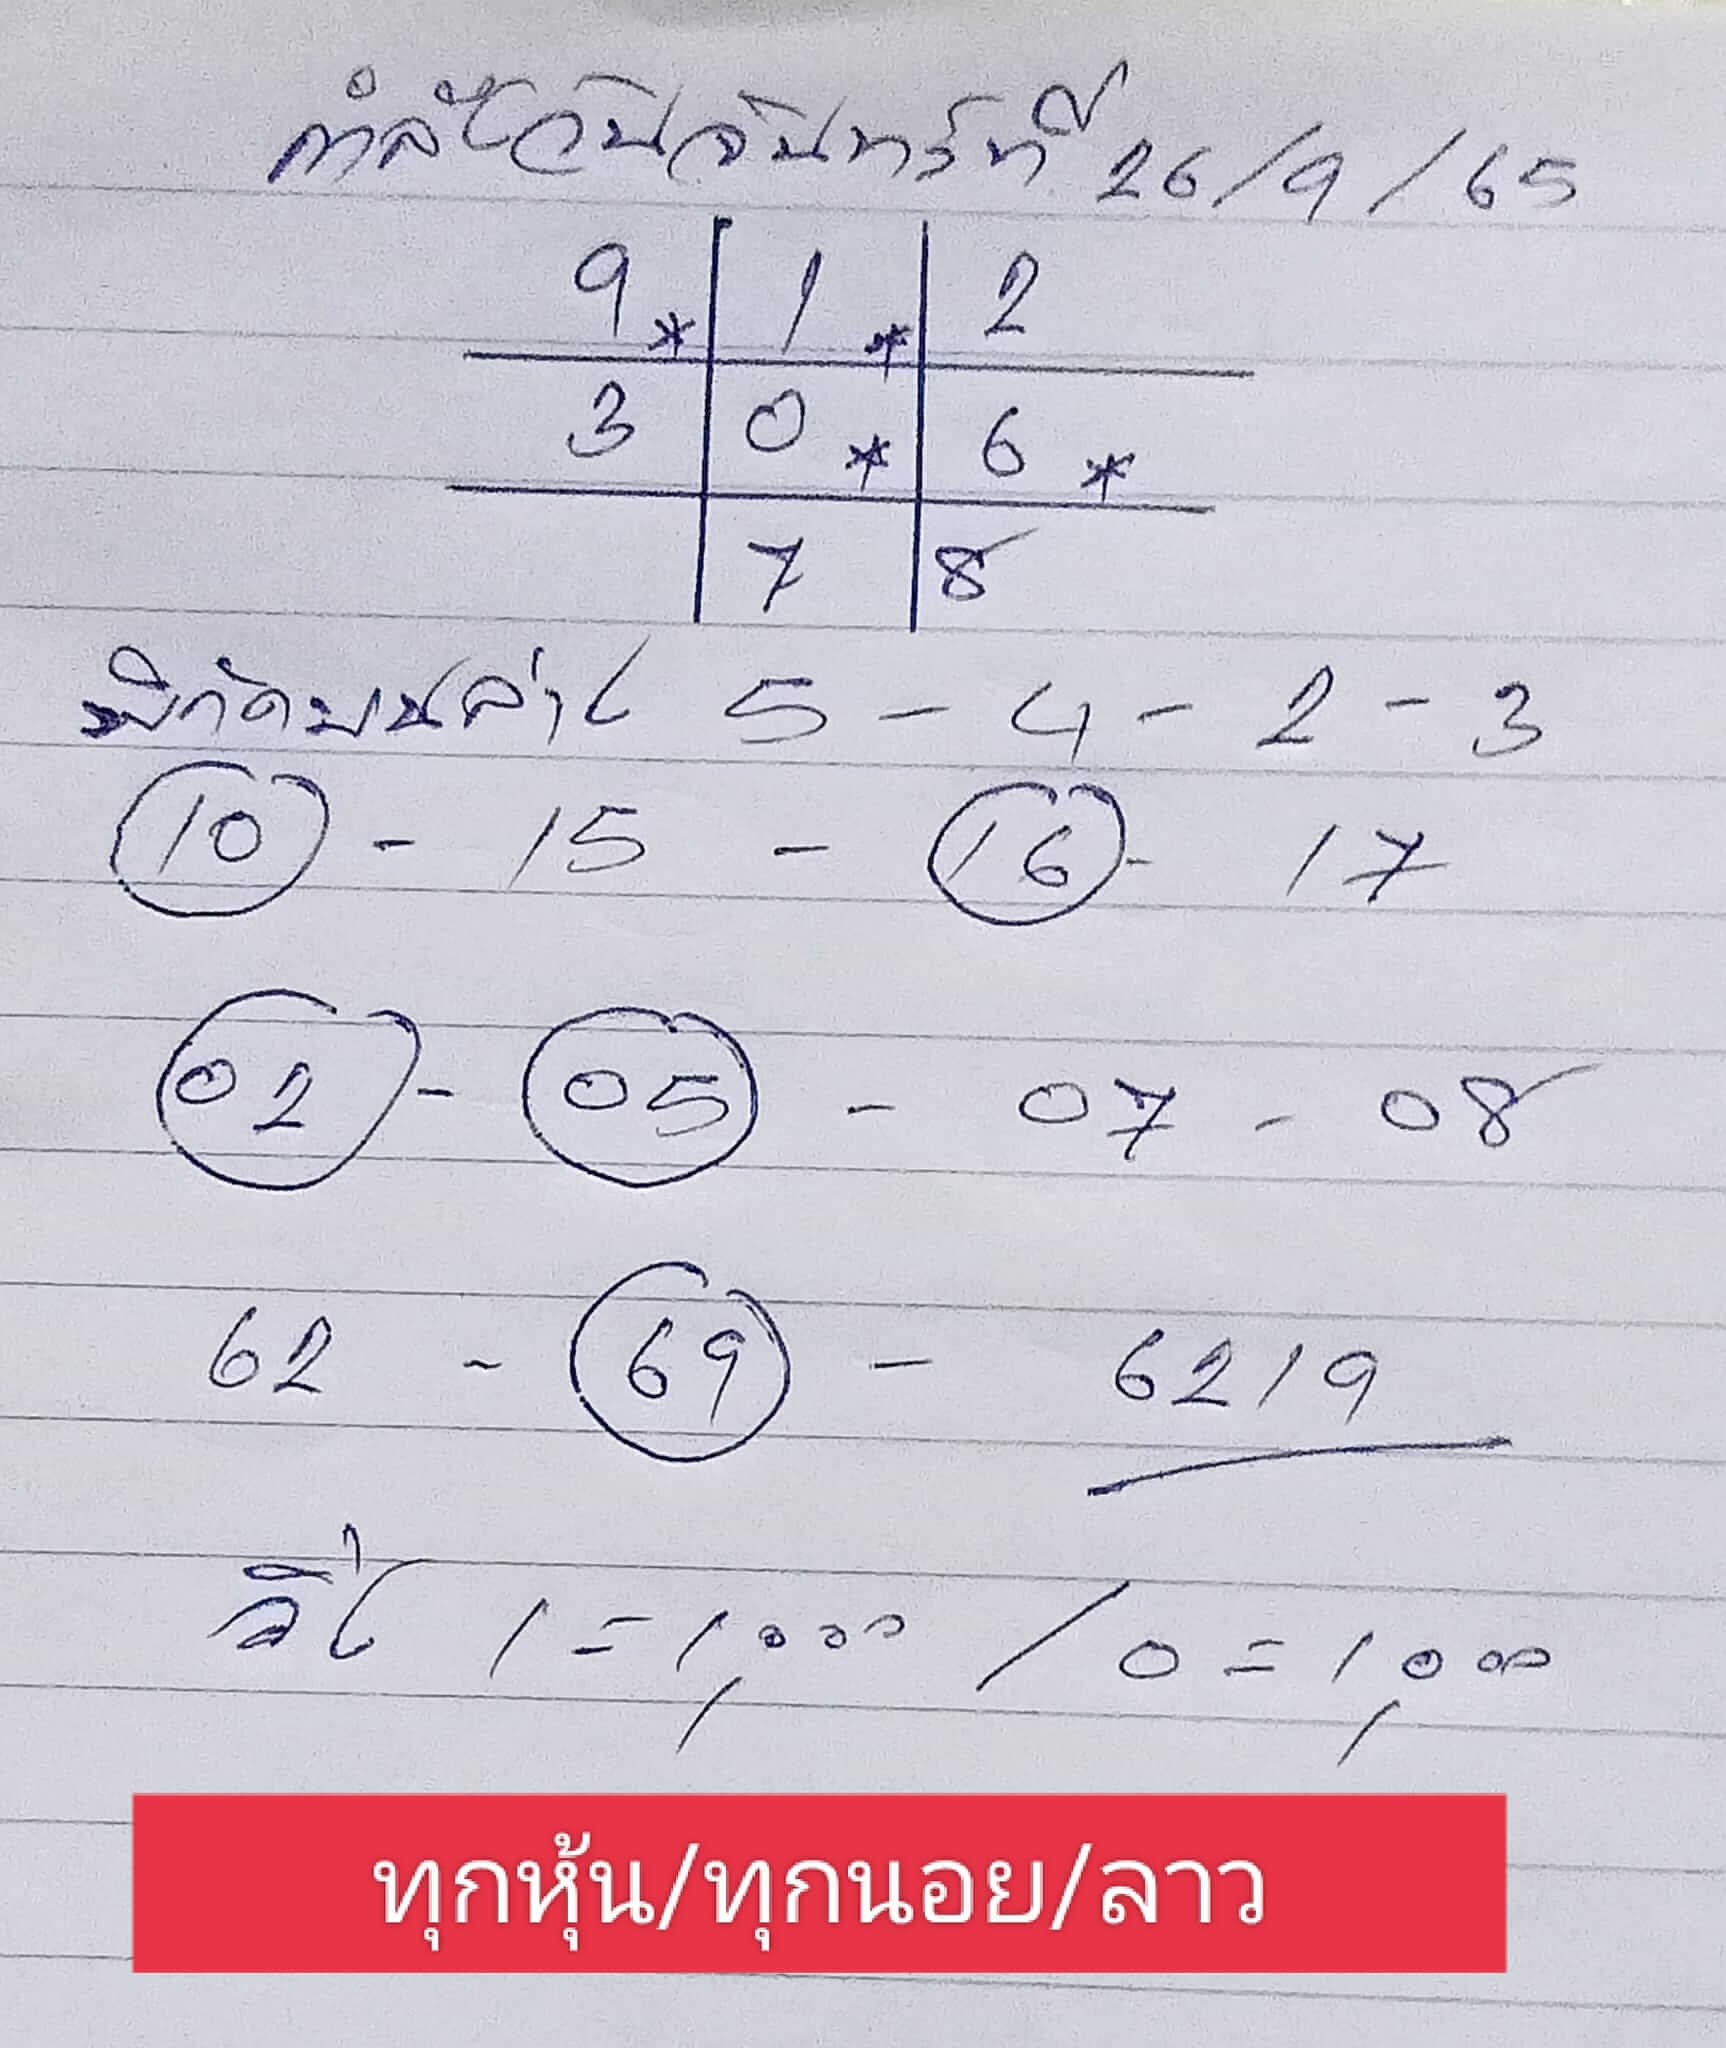 กำลังวันจันทร์ที่ 26/9/65
9* 1* 2
3 0* 6*
7 8
พิกัดบนล่าง 5-4-2-3
10 - 15 - 16 - 17
02 - 05 - 07 - 08
62 - 69 - 6219
วิ่ง 1=1,000 / 0=1,000
ทุกหุ้น/ทุกนอย/ลาว